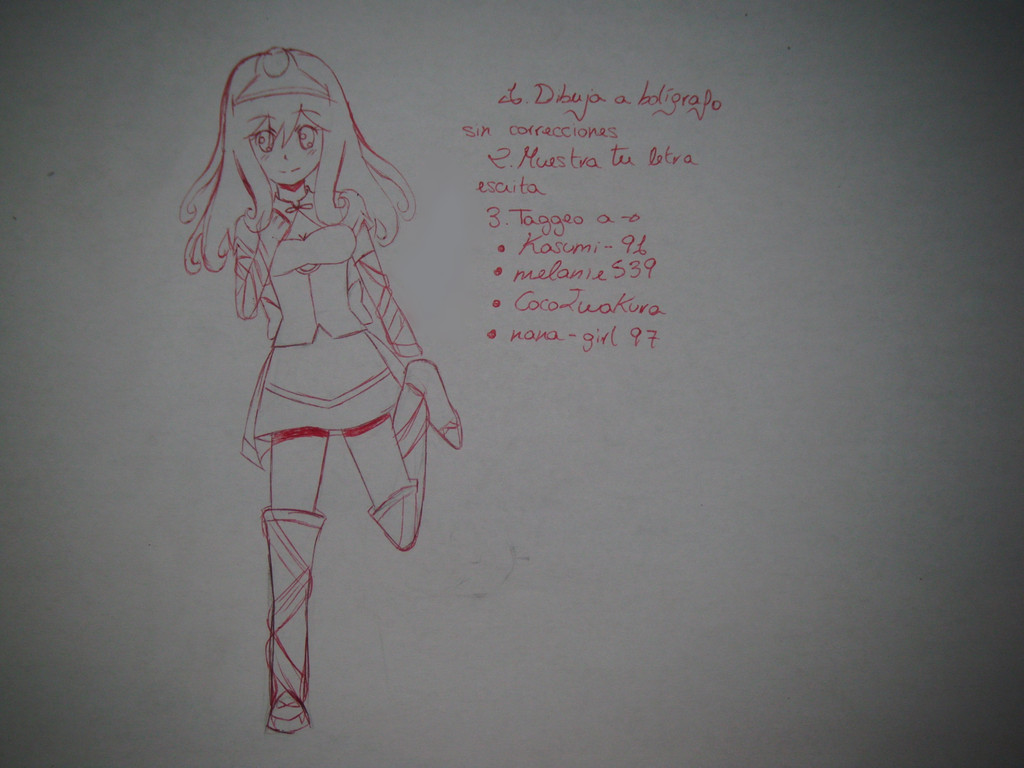 1. Dibuja a bolígrafo
sin correcciones
2. Muestra tu letra
escrita
3. Taggeo a
• Kasumi-91
• melanie539
• CocoIwakura
• nana-girl 97